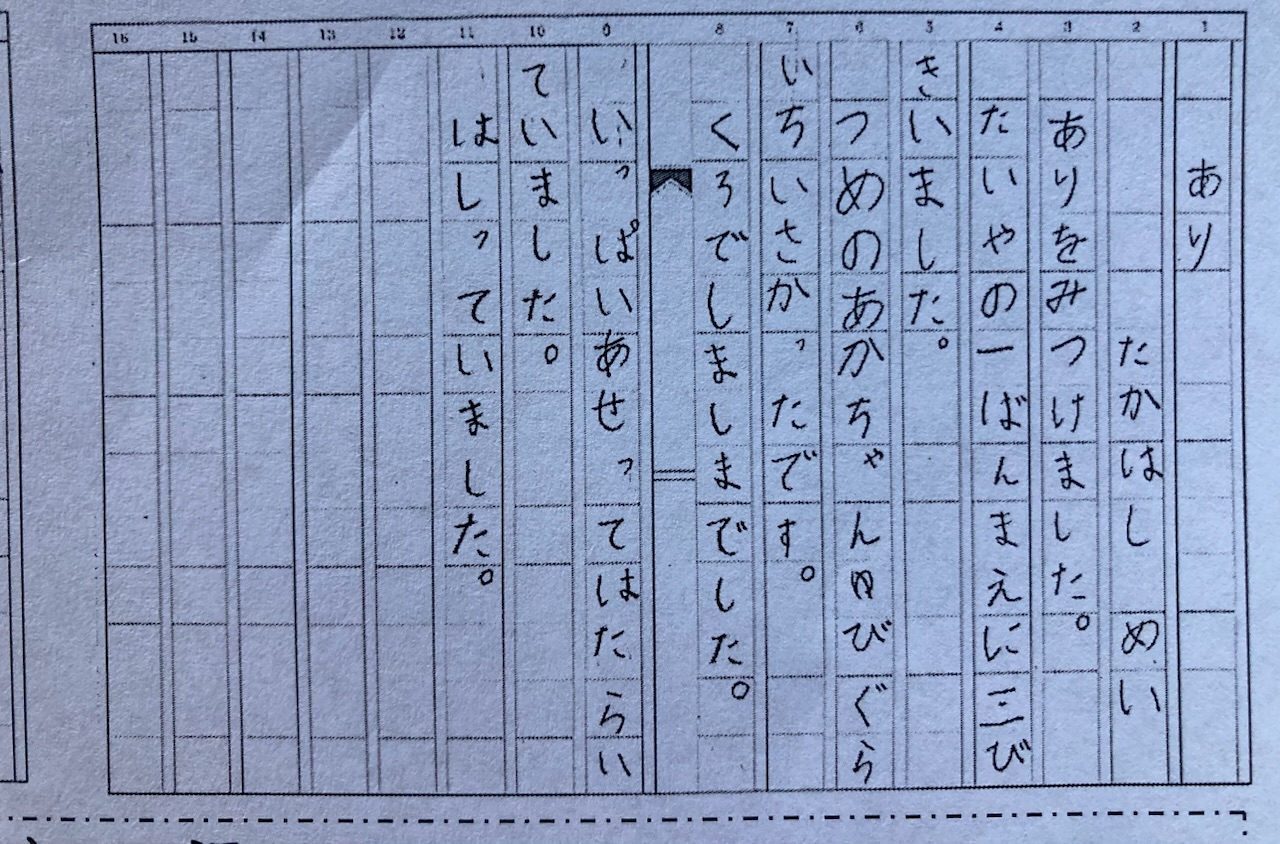 1 2 3 4 5 6 7 8 9 10 11 12 13 14 15 16
あり
たかはし めい
ありをみつけました。
たいやの一ばんまえに三び
きいました。
つめのあかちゃんゆびぐら
いちいさかったです。
くろでしましまでした。
いっぱいあせってはたらい
ていました。
はしっていました。